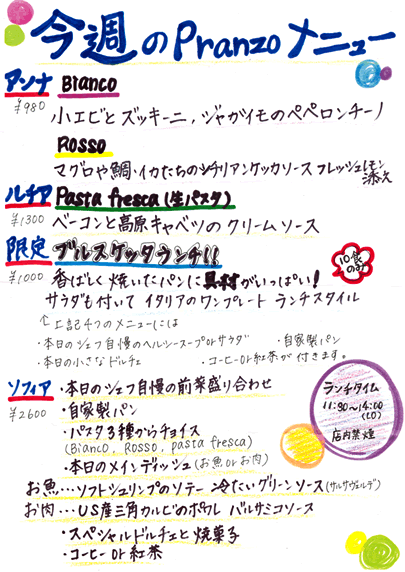 今週のPranzoメニュー
アンナ Bianco
¥980
小エビとズッキーニ,ジャガイモのペペロンチーノ
Rosso
マグロや鯛・イカたちのシチリアンケッカソース フレッシュレモン添え
ルチア Pasta fresca(生パスタ)
¥1300 ベーコンと高原キャベツのクリームソース
限定 ブルスケッタランチ!!
10食のみ
¥1000 香ばしく焼いたパンに具材がいっぱい!
サラダも付いてイタリアのワンプレートランチスタイル
↑上記4つのメニューには
・本日のシェフ自慢のヘルシースープorサラダ ・自家製パン
・本日の小さなドルチェ ・コーヒーor紅茶が付きます。
ソフィア ・本日のシェフ自慢の前菜盛り合わせ
¥2600 ・自家製パン
・パスタ3種からチョイス
(Bianco, Rosso, pasta fresca)
・本日のメインディッシュ(お魚orお肉)
ランチタイム
11:30~14:00
(LO)
店内禁煙
お魚…ソフトシュリンプのソテー 冷たいグリーンソース(サルサヴェルデ)
お肉…US産三角カルビのポワレ バルサミコソース
・スペシャルドルチェと焼菓子
・コーヒーor紅茶